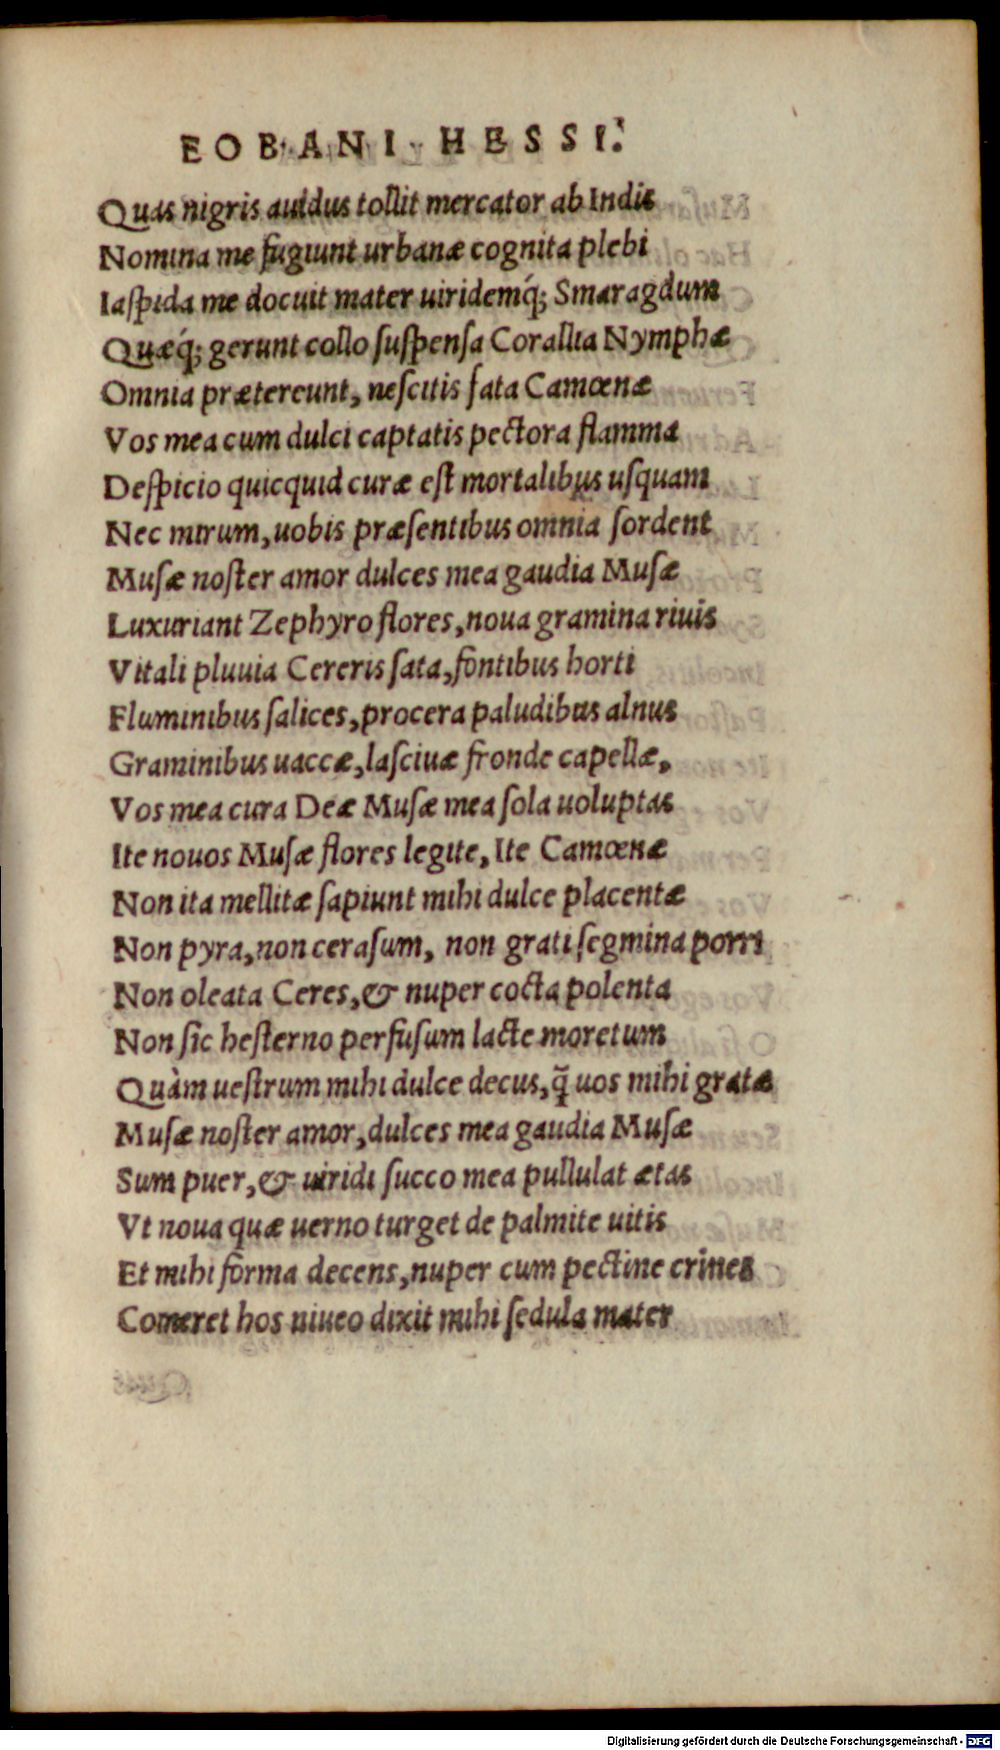 EOBANI HESSI.
Quas nigris auidus tollit mercator ab Indis
Nomina me fugiunt urbanæ cognita plebi
Iaſpida me docuit mater uiridemq́; Smaragdum
Quæq́; gerunt collo ſuſpenſa Corallia Nymphæ
Omnia prætereunt, neſcitis fata Camœnæ
Vos mea cum dulci captatis pectora flamma
Deſpicio quicquid curæ eſt mortalibus uſquam
Nec mirum, uobis præſentibus omnia ſordent
Muſæ noſter amor dulces mea gaudia Muſæ
Luxuriant Zephyro flores, noua gramina riuis
Vitali pluuia Cereris ſata, fontibus horti
Fluminibus ſalices, procera paludibus alnus
Graminibus uaccæ, laſciuæ fronde capellæ,
Vos mea cura Deæ Muſæ mea ſola uoluptas
Ite nouos Muſæ flores legite, Ite Camœnæ
Non ita mellitæ ſapiunt mihi dulce placentæ
Non pyra, non ceraſum, non grati ſegmina porri
Non oleata Ceres, & nuper cocta polenta
Non ſic heſterno perfuſum lacte moretum
Quàm ueſtrum mihi dulce decus, q̃ uos mihi gratæ
Muſæ noſter amor, dulces mea gaudia Muſæ
Sum puer, & uiridi ſucco mea pullulat ætas
Vt noua quæ uerno turget de palmite uitis
Et mihi forma decens, nuper cum pectine crines
Comeret hos niueo dixit mihi ſedula mater
Digitalisierung gefördert durch die Deutsche Forschungsgemeinschaft - DFG